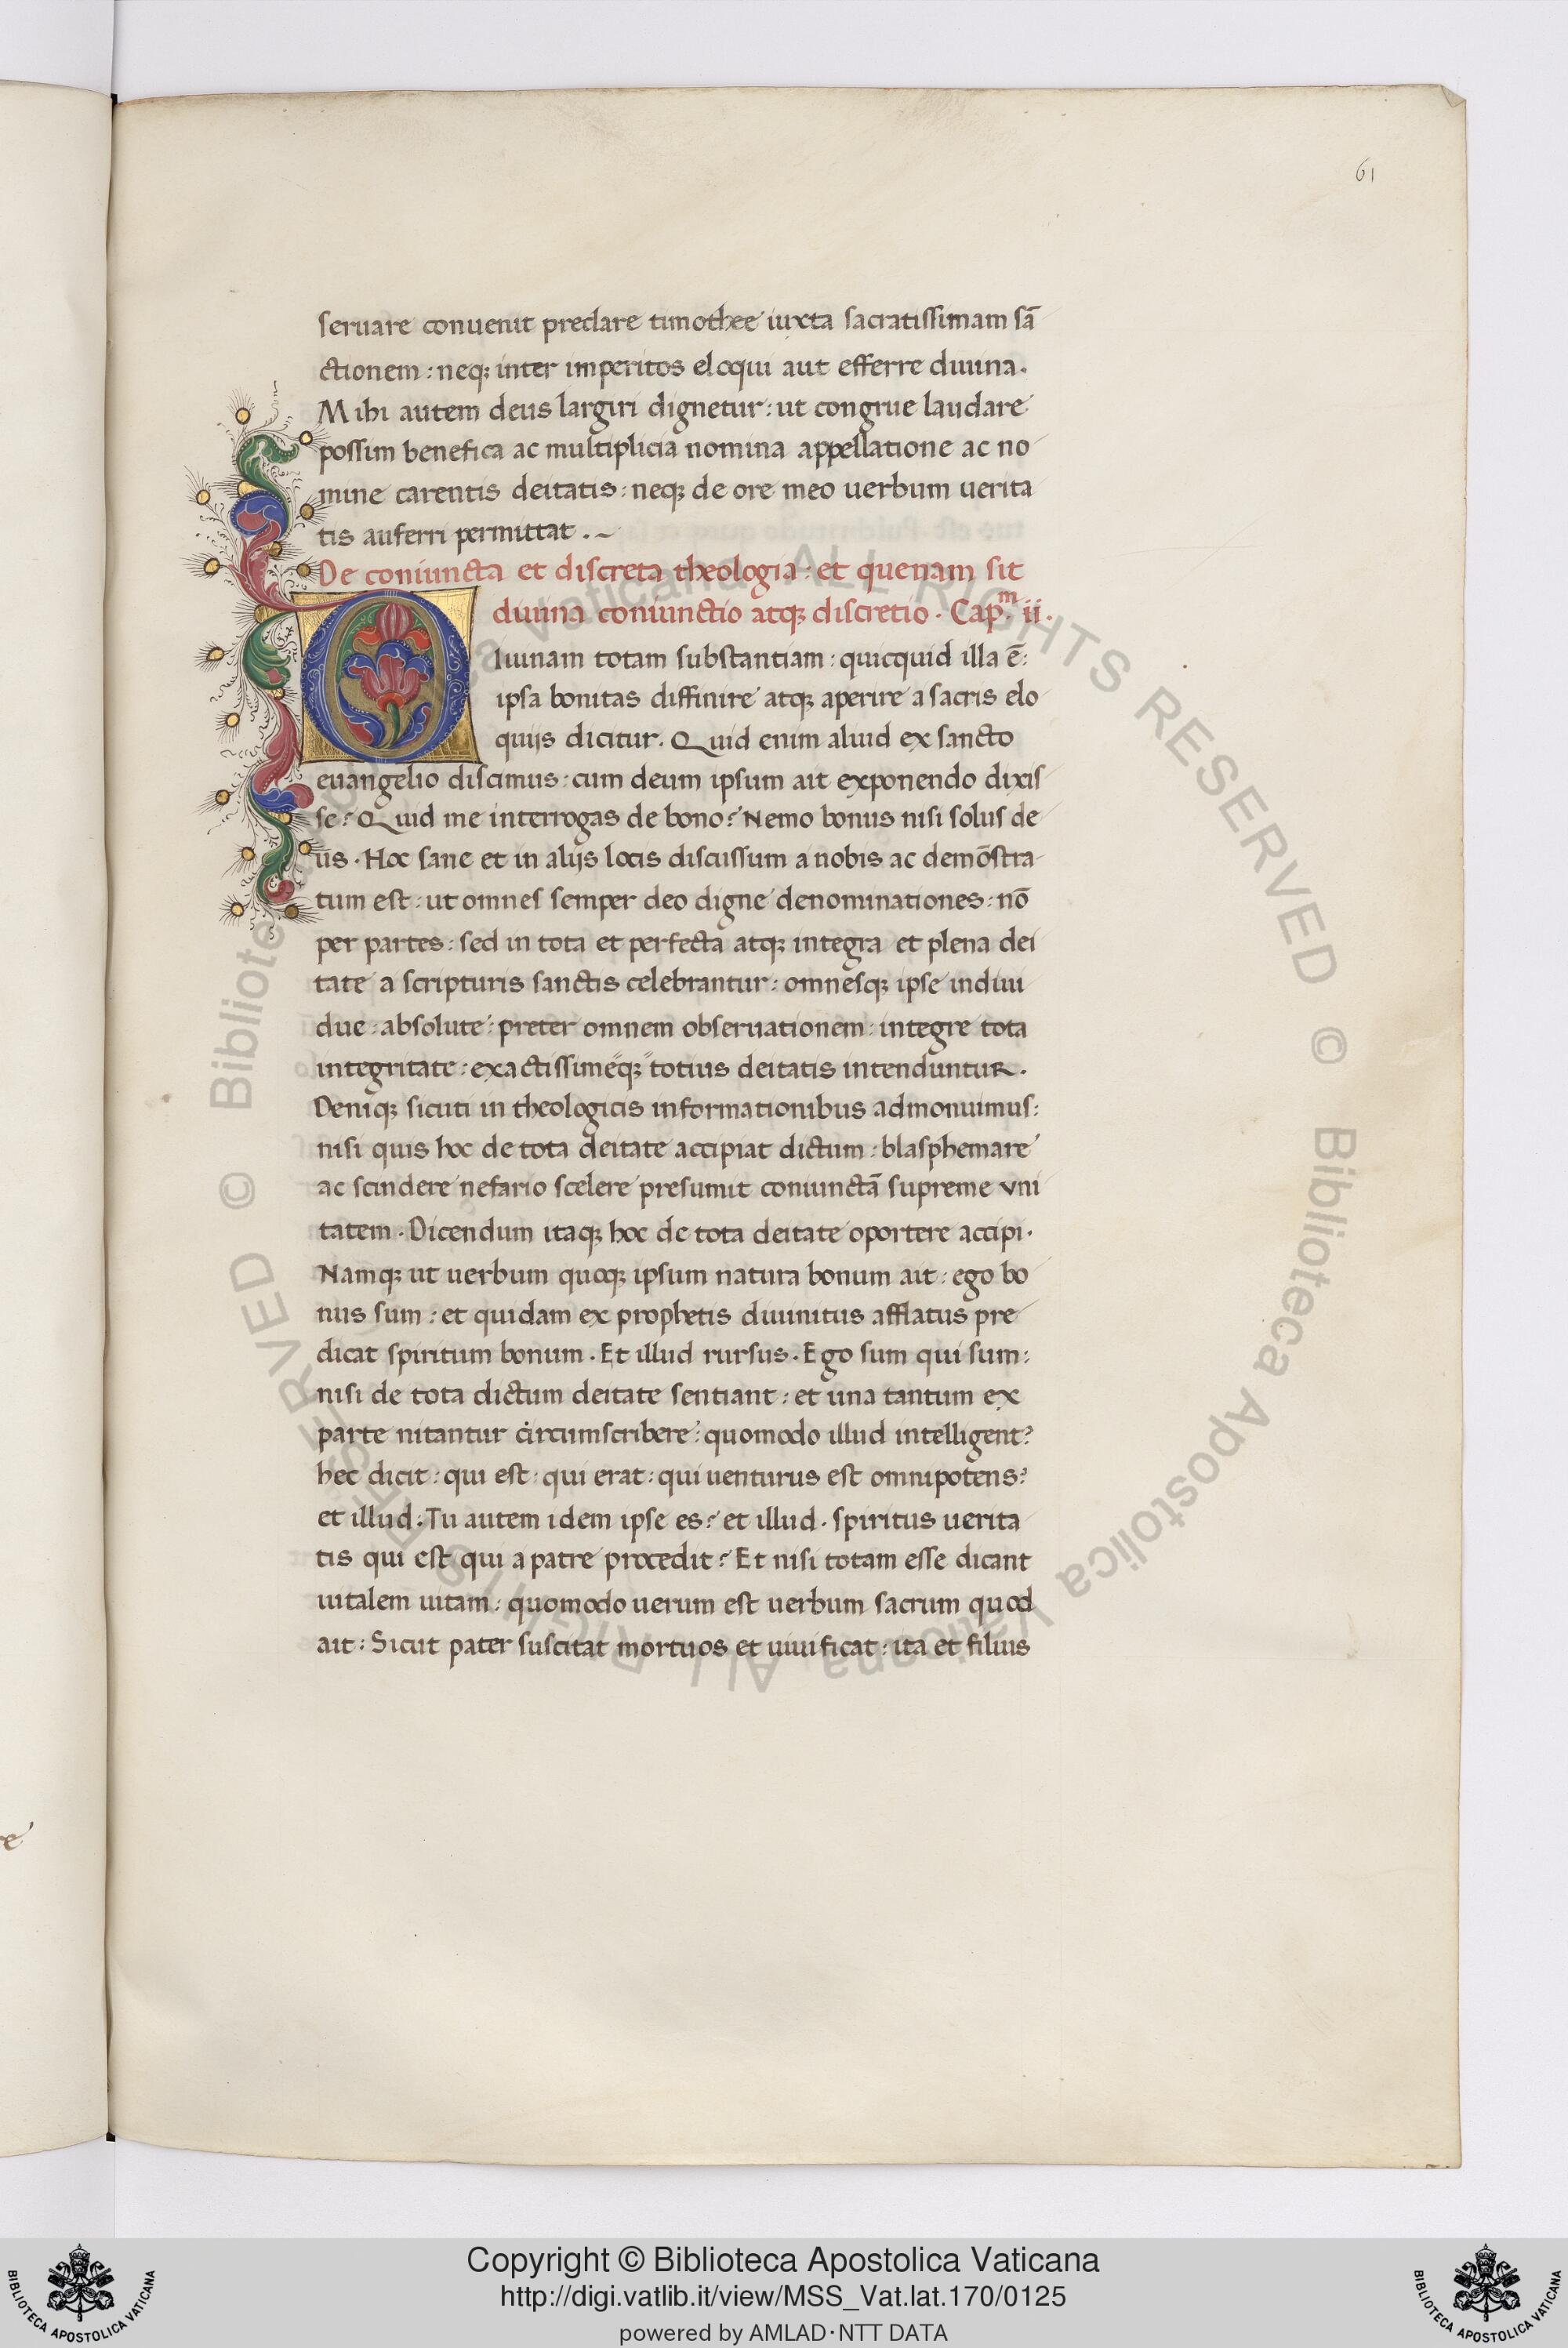 61
seruare conuenit preclare timothee iuxta sacratissimam sā
ctionem : neqꝫ inter imperitos eloqui aut efferre diuina.
Mihi autem deus largiri dignetur : ut congrue laudare
possim benefica ac multiplicia nomina appellatione ac no
mine carentis deitatis : neqꝫ de ore meo uerbum uerita
tis auferri permittat . ~
De coniuncta et discreta theologia : et quenam sit
diuina coniunctio atqꝫ discretio . Cap.m ii .
Diuinam totam substantiam : quicquid illa ē :
ipsa bonitas diffinire atqꝫ aperire a sacris elo
quijs dicitur. Quid enim aliud ex sancto
euangelio discimus : cum deum ipsum ait exponendo dixis
se? Quid me interrogas de bono? Nemo bonus nisi solus de
us . Hoc sane et in alijs locis discussum a nobis ac demōstra
tum est : ut omnes semper deo digne denominationes : nō
per partes : sed in tota et perfecta atqꝫ integra et plena dei
tate a scripturis sanctis celebrantur : omnesqꝫ ipse indiui
due : absolute : preter omnem obseruationem : integre tota
integritate : exactissimeqꝫ totius deitatis intenduntur .
Deniqꝫ sicuti in theologicis informationibus admonuimus :
nisi quis hoc de tota deitate accipiat dictum : blasphemare
ac scindere nefario scelere presumit coniunctā supreme vni
tatem . Dicendum itaqꝫ hoc de tota deitate oportere accipi .
Namqꝫ ut uerbum quoqꝫ ipsum natura bonum ait : ego bo
nus sum : et quidam ex prophetis diuinitus afflatus pre
dicat spiritum bonum . Et illud rursus . Ego sum qui sum :
nisi de tota dictum deitate sentiant : et una tantum ex
parte nitantur circumscribere : quomodo illud intelligent?
hec dicit : qui est : qui erat : qui uenturus est omnipotens?
et illud : Tu autem idem ipse es? et illud . spiritus uerita
tis qui est qui a patre procedit? Et nisi totam esse dicant
uitalem uitam : quomodo uerum est uerbum sacrum quod
ait : Sicut pater suscitat mortuos et uiuificat : ita et filius
Copyright © Biblioteca Apostolica Vaticana
http://digi.vatlib.it/view/MSS_Vat.lat.170/0125
powered by AMLAD·NTT DATA
BIBLIOTECA APOSTOLICA VATICANA
BIBLIOTECA APOSTOLICA VATICANA
© Biblioteca Apostolica Vaticana, ALL RIGHTS RESERVED © Biblioteca Apostolica Vaticana, ALL RIGHTS RESERVED